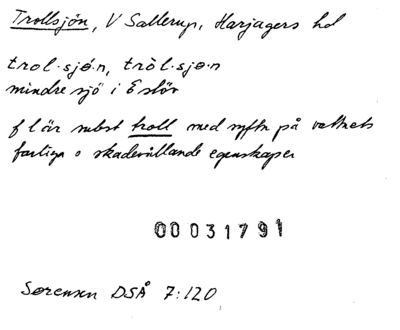 Trollsjön, V Sallerup, Harjagers hd
trol·sjø·n, tròl·sjø·n
mindre sjö i Eslöv
fl är subst troll med syftn på vattnets
farliga o skadevållande egenskaper
00031791
Sørensen DSÅ 7:120